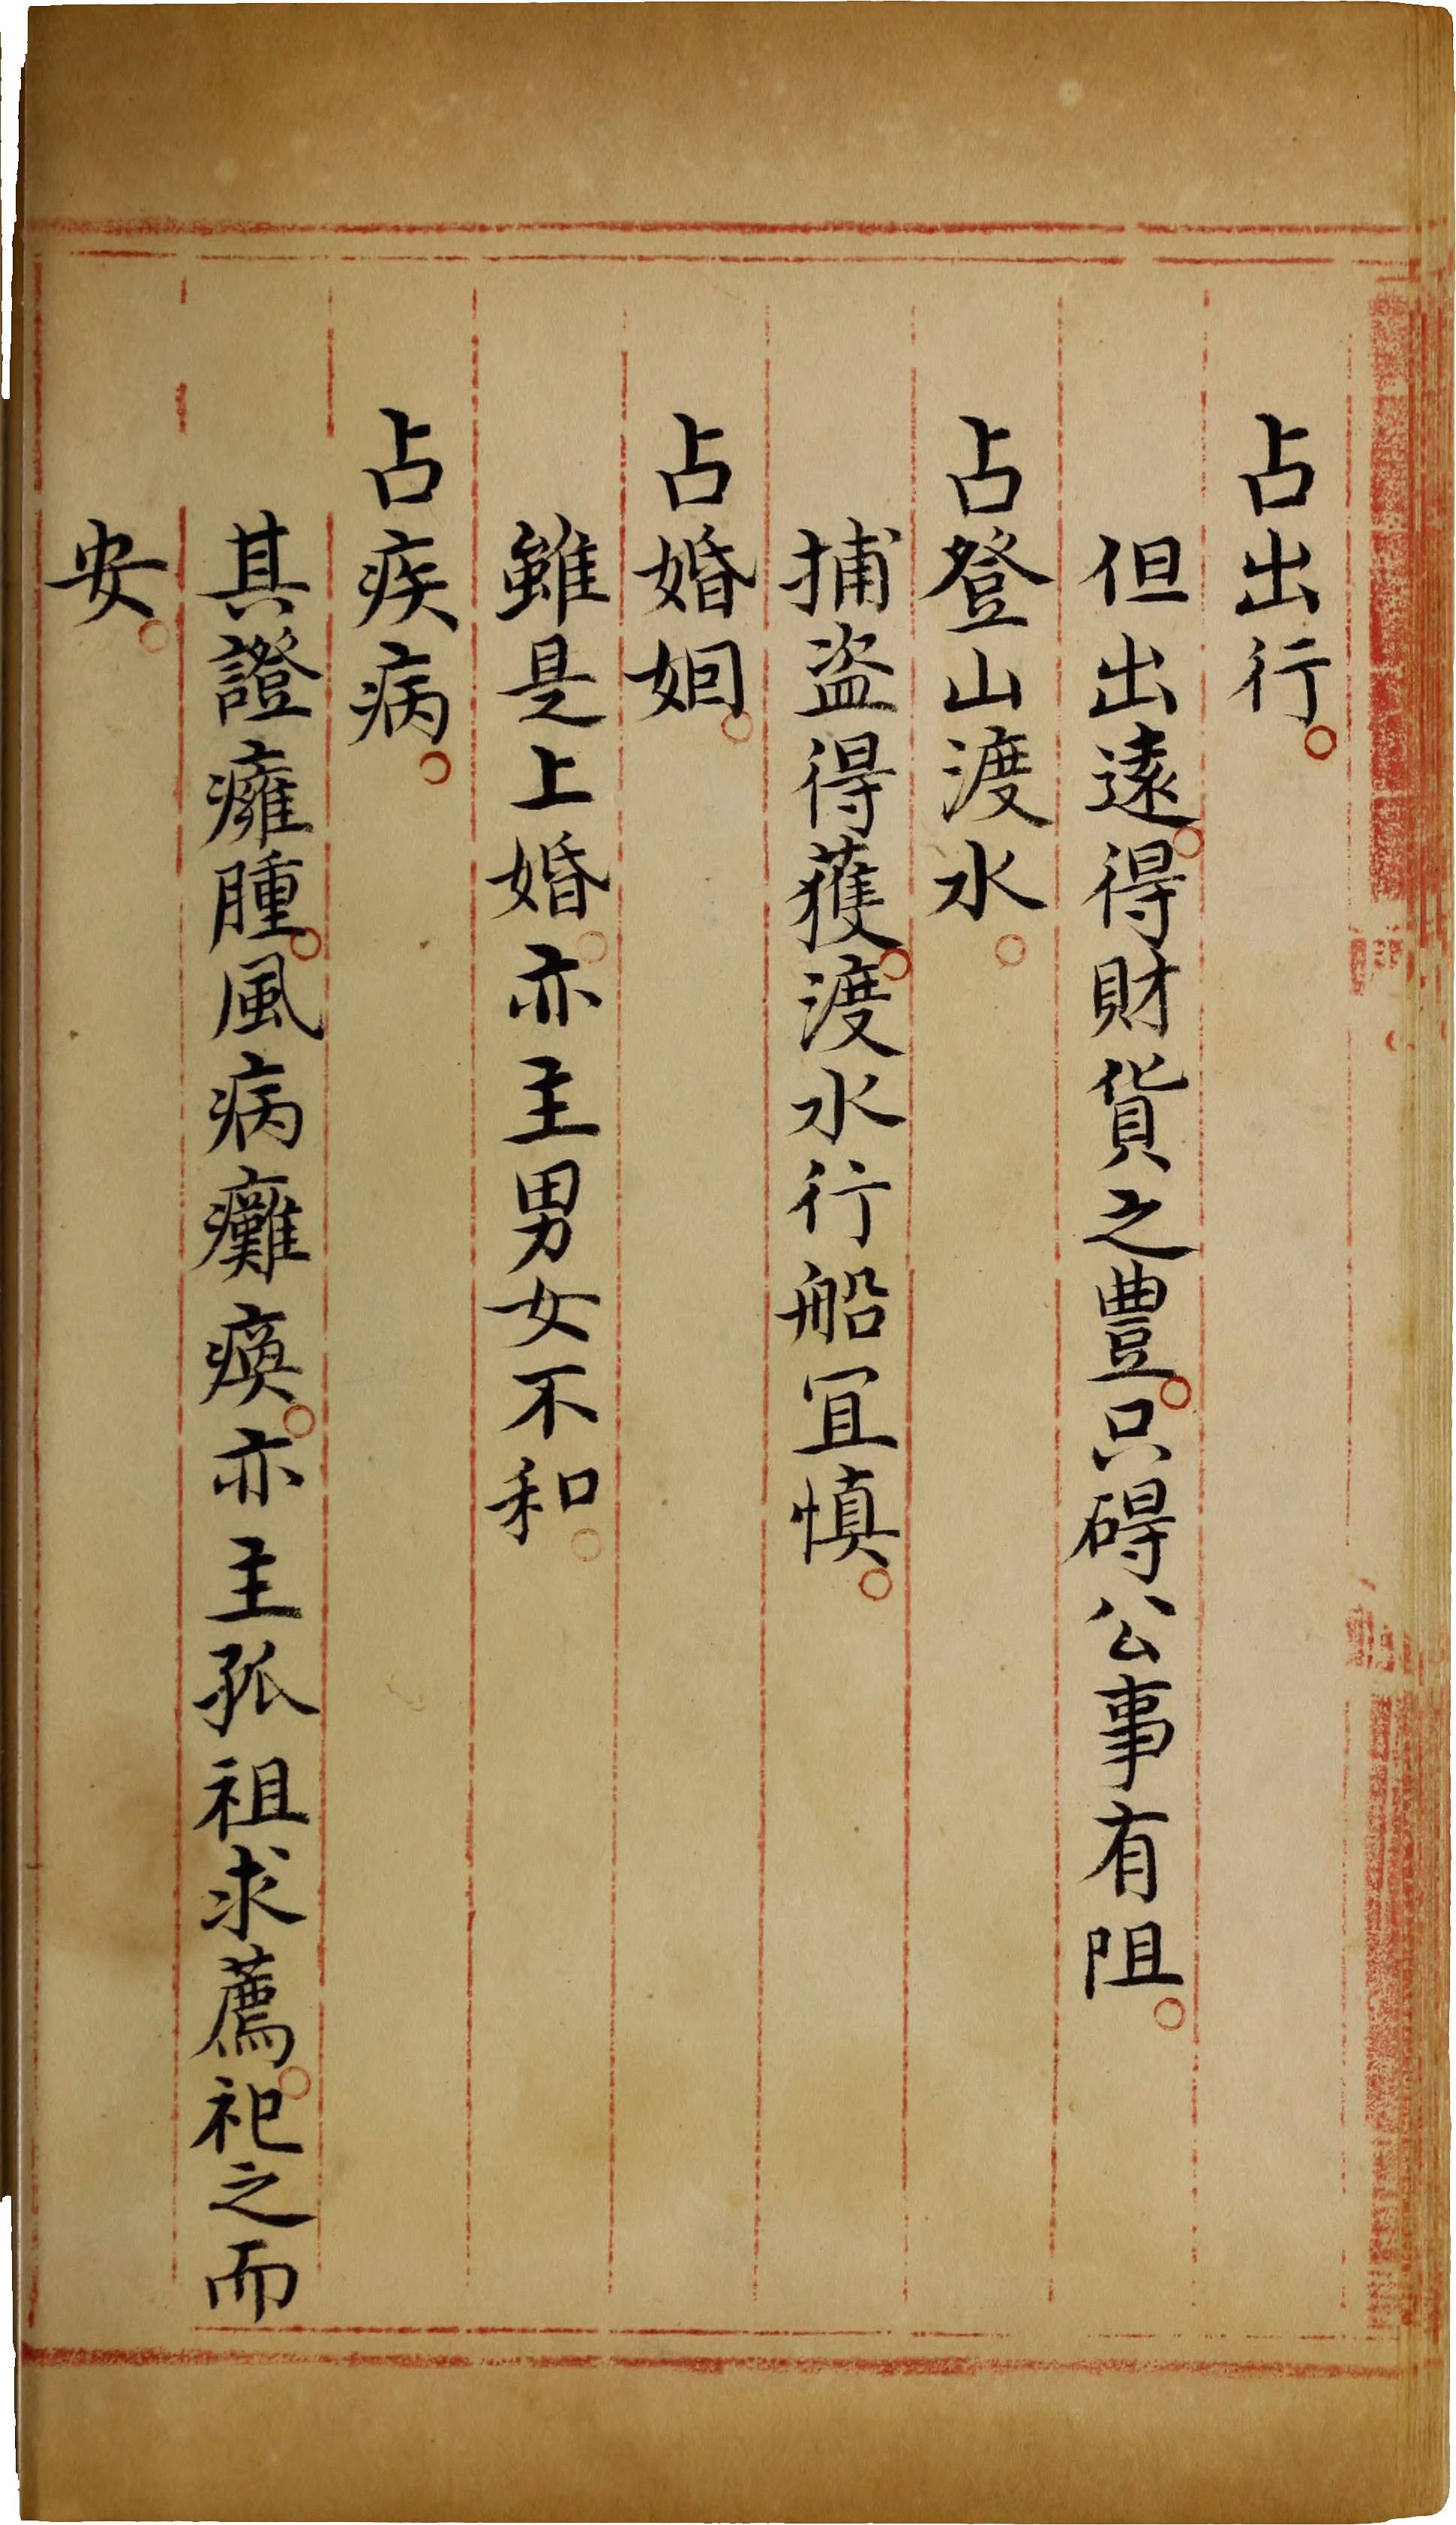 占出行。
但出遠。得財貨之豊。只碍公事有阻。
占登山渡水。
捕盗得獲。渡水行船宜慎。
占婚姻。
雖是上婚。亦主男女不和。
占疾病。
其證癰腫。風病癱瘓。亦主孤祖求薦。祀之而
安。